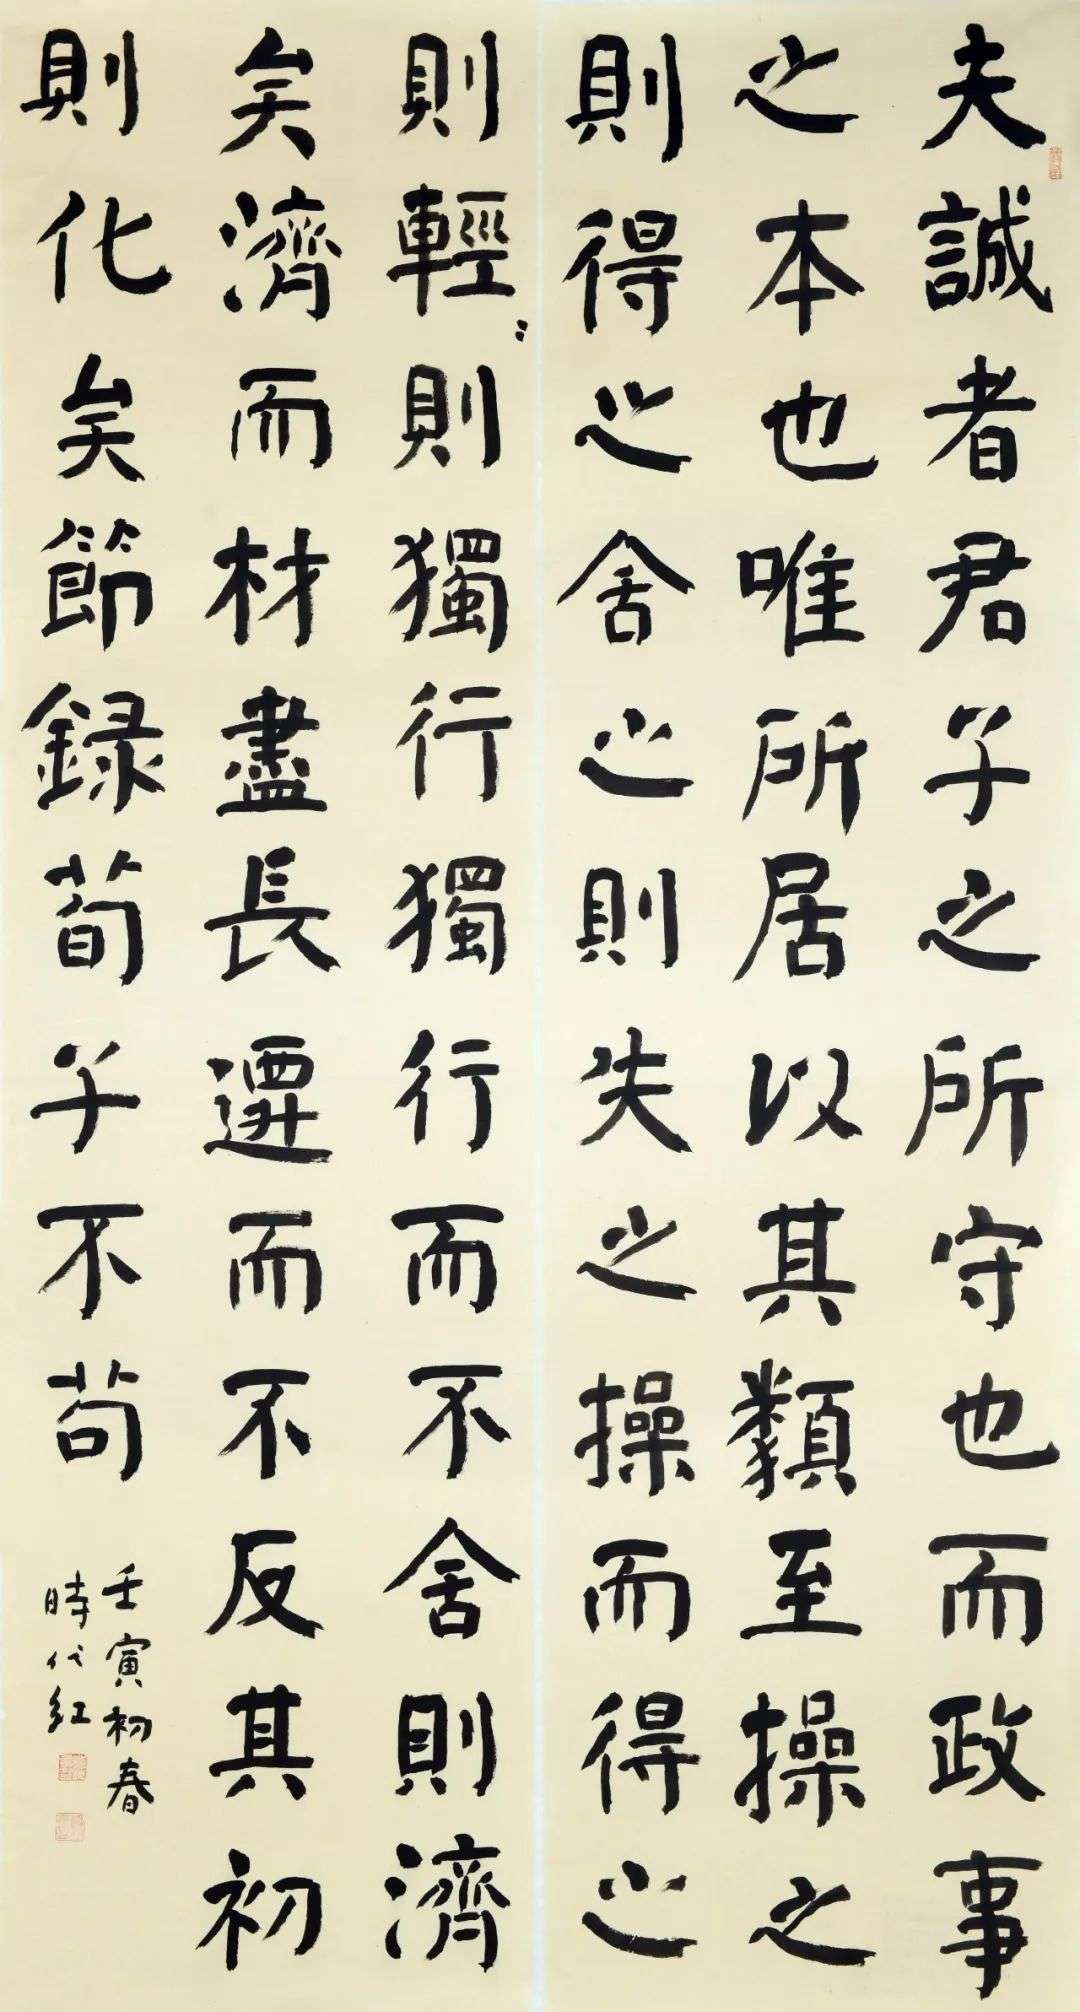 夫誠者君子之所守也而政事
之本也唯所居以其類至操之
則得之舍之則失之操而得之
則輕〻則獨行獨行而不舍則濟
矣濟而材盡長遷而不反其初
則化矣節錄荀子不苟
壬寅初春
時代紅